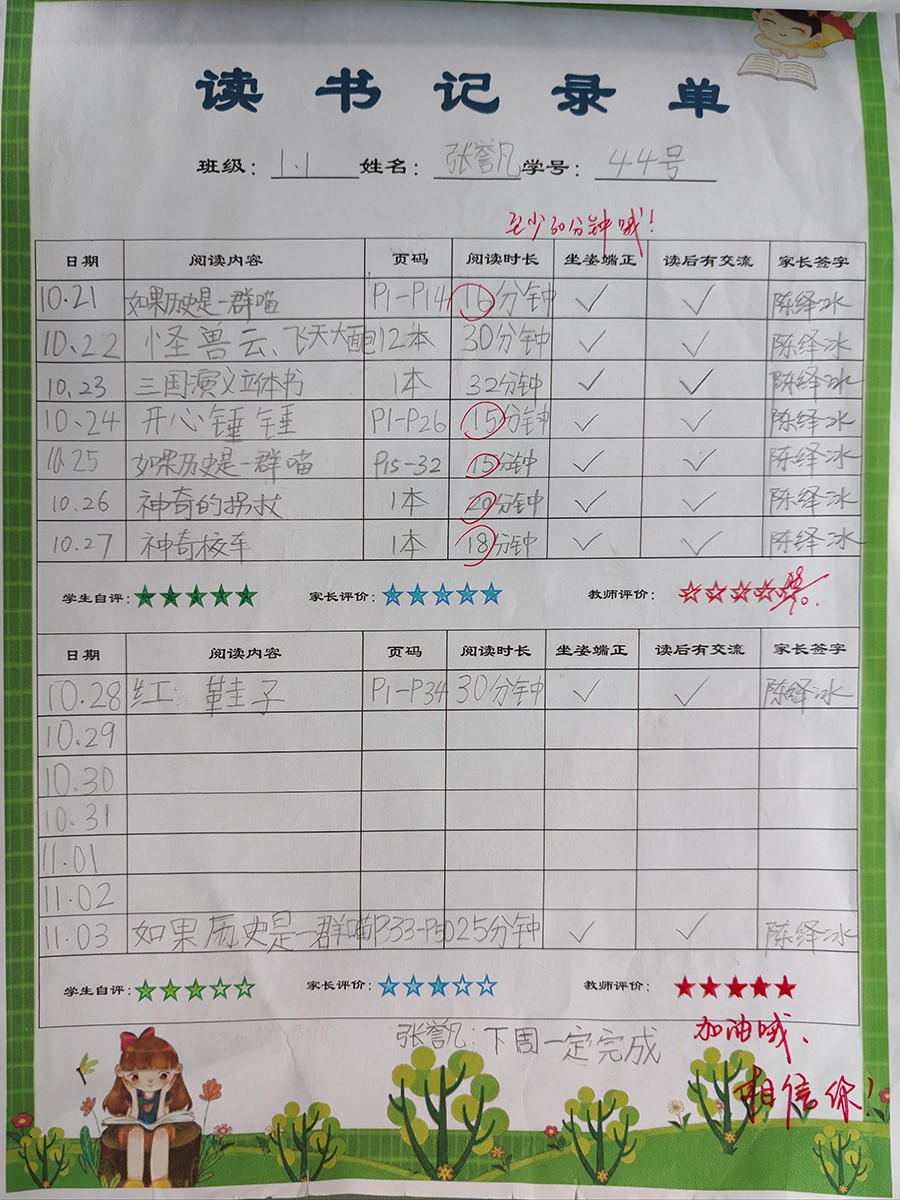 读书记录单
班级：1.1 姓名：张誉凡 学号：44号
至少30分钟哦！
日期 阅读内容 页码 阅读时长 坐姿端正 读后有交流 家长签字
10.21 如果历史是一群喵 P1-P14 16分钟 ✓ ✓ 陈绎冰
10.22 怪兽云、飞天大面包 12本 30分钟 ✓ ✓ 陈绎冰
10.23 三国演义立体书 1本 32分钟 ✓ ✓ 陈绎冰
10.24 开心锤锤 P1-P26 15分钟 ✓ ✓ 陈绎冰
10.25 如果历史是一群喵 P15-32 15分钟 ✓ ✓ 陈绎冰
10.26 神奇的拐杖 1本 20分钟 ✓ ✓ 陈绎冰
10.27 神奇校车 1本 18分钟 ✓ ✓ 陈绎冰
学生自评：★★★★★ 家长评价：★★★★★ 教师评价：☆☆☆☆
日期 阅读内容 页码 阅读时长 坐姿端正 读后有交流 家长签字
10.28 红鞋子 P1-P34 30分钟 ✓ ✓ 陈绎冰
10.29
10.30
10.31
11.01
11.02
11.03 如果历史是一群喵 P33-P50 25分钟 ✓ ✓ 陈绎冰
学生自评：★★★☆☆ 家长评价：★★★☆☆ 教师评价：★★★★★
张誉凡：下周一定完成
加油哦、
相信你！